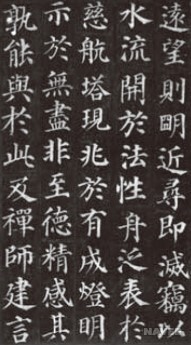 遠望則眀近尋即滅竊以
水流開於法性舟泛表於
慈航塔現兆於有成燈明
示於無盡非至德精感其
孰能與於此及禪師建言